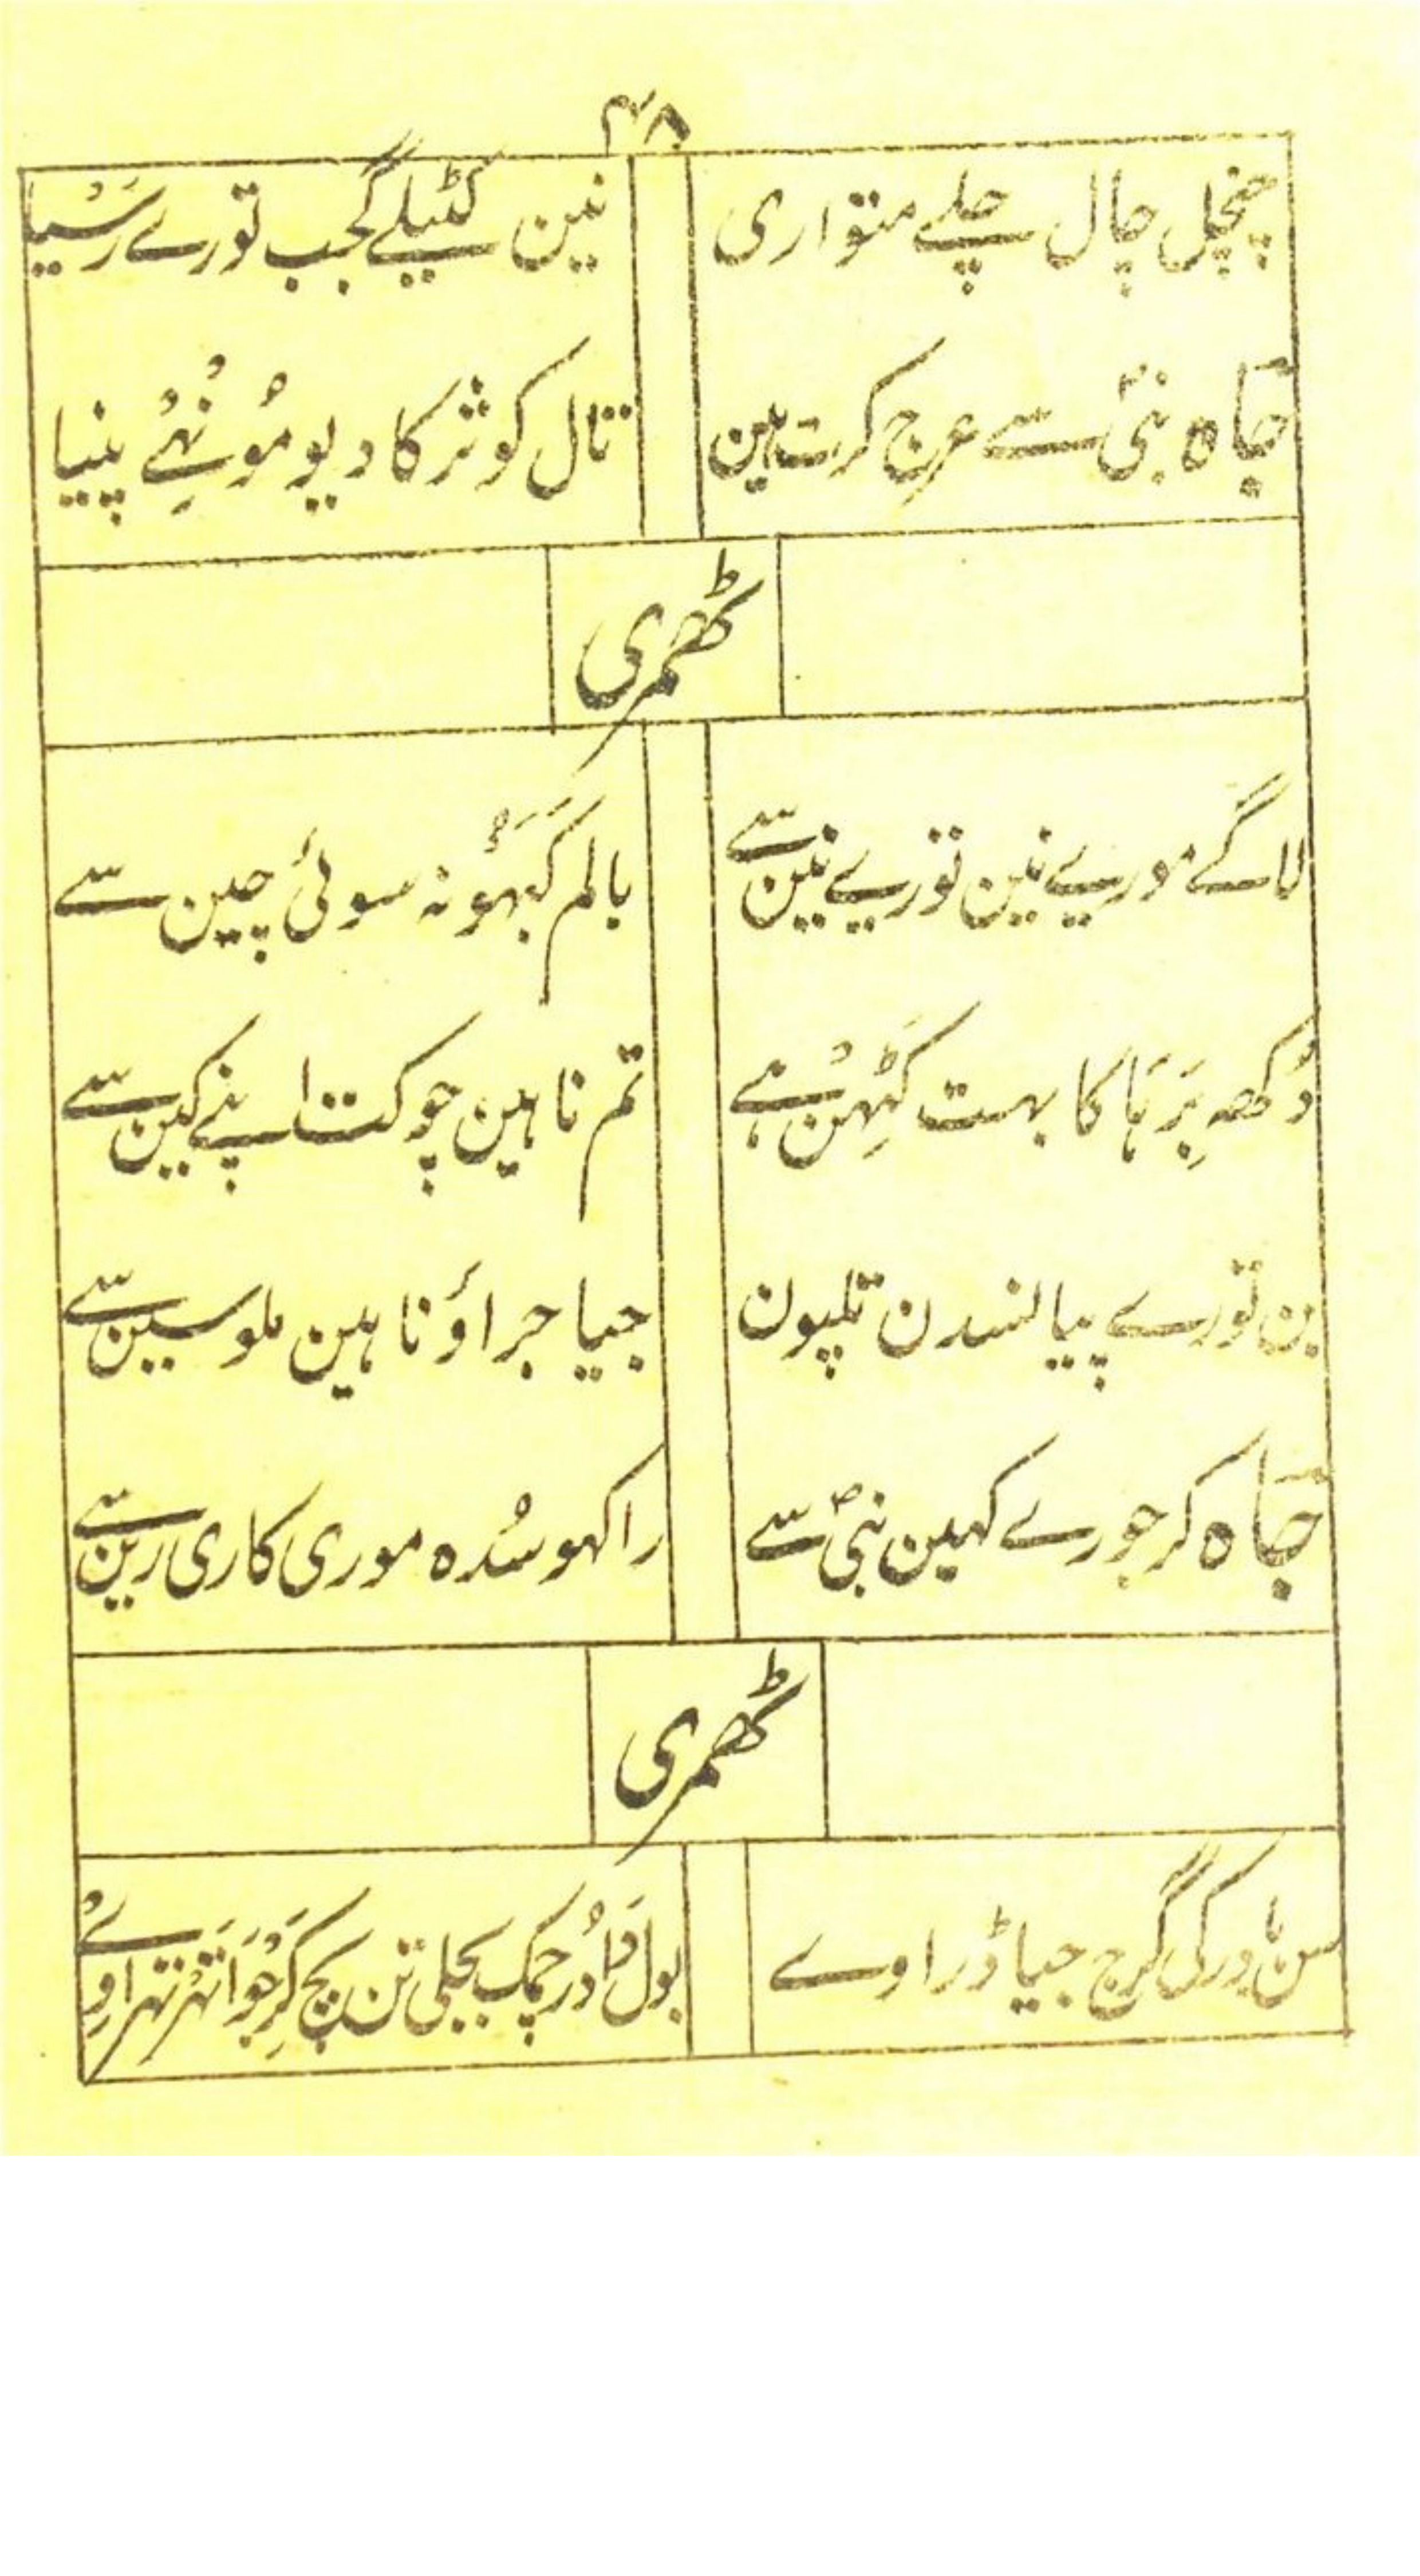 ۴۸
چنچل چال چلے متواری
نین کٹیلے گجب تورے رَسْیا
جاہ نبیؐ سے عرج کرت ہین
تال کوثر کا دیو مُونہے پنیا
ٹھمری
لاگے مورے نین تورے نین سے
بالم کَبَہُو نہ سوئی چین سے
دُکھہ بِرَہَا کا بہت کَٹِہنْ ہے
تم ناہین چوکت اپنے کین سے
بن تورے پیا نسدن تلپون
جیا جراؤ ناہین ملو سین سے
جاہ کر جورے کہین نبیؐ سے
راکہو سُدہ موری کاری رین سے
ٹھمری
سن بادر کی گرج جیا ڈراوے
بول دَادُر چمک بجلی تن بیچ کَرِجْوَا تہرتہراوے